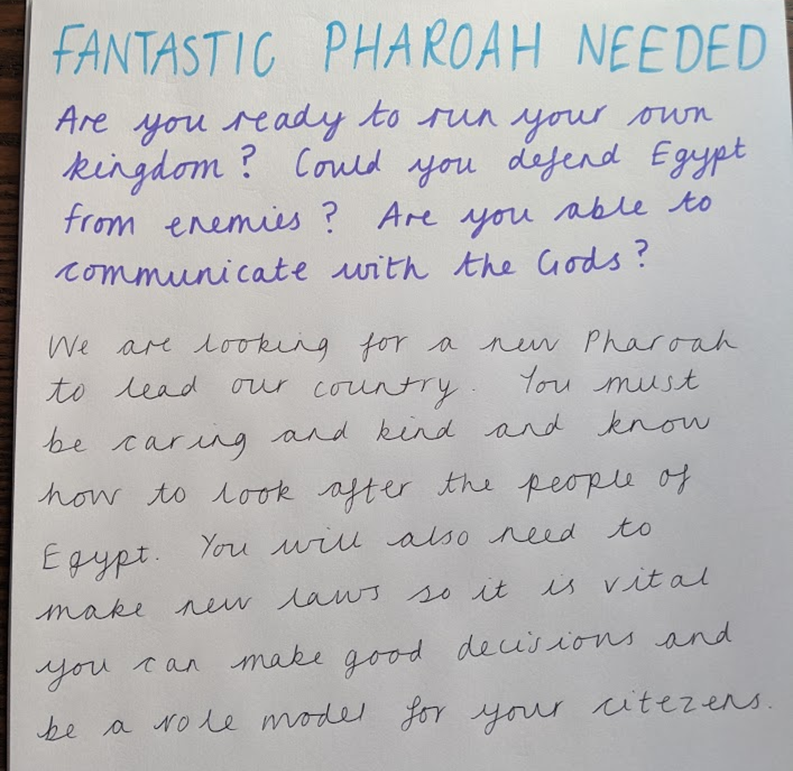 FANTASTIC PHAROAH NEEDED
Are you ready to run your own
kingdom? Could you defend Egypt
from enemies? Are you able to
communicate with the Gods?
We are looking for a new Pharoah
to lead our country. You must
be caring and kind and know
how to look after the people of
Egypt. You will also need to
make new laws so it is vital
you can make good decisions and
be a role model for your citezens.